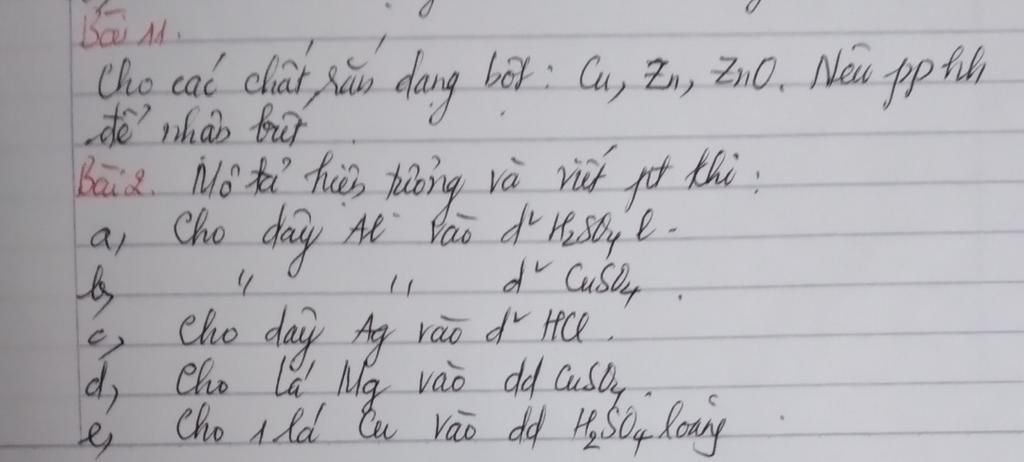 Bài 11.
Cho các chất rắn dạng bột: Cu, Zn, ZnO. Nêu pp hh
để nhận biết.
Bài 2. Mô tả hiện tượng và viết pt khi:
a, Cho dây Al vào d² H₂SO₄ l.
b, " " d² CuSO₄.
c, Cho dây Ag vào d² HCl.
d, Cho lá Mg vào dd CuSO₄.
e, Cho 1 lá Cu vào dd H₂SO₄ loãng